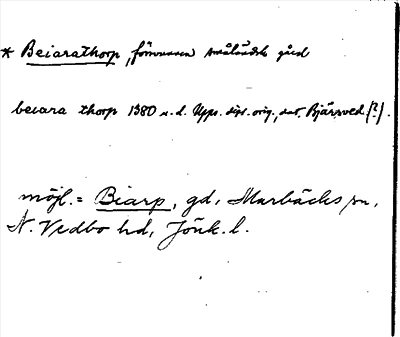 * Beiarathorp, försvunnen småländsk gård
beiara thorp 1380 u.d. Upps. dipl. orig., dat. Bjärsved (?).
möjl. = Biarp, gd, Marbäcks sn,
N. Vedbo hd, Jönk. l.